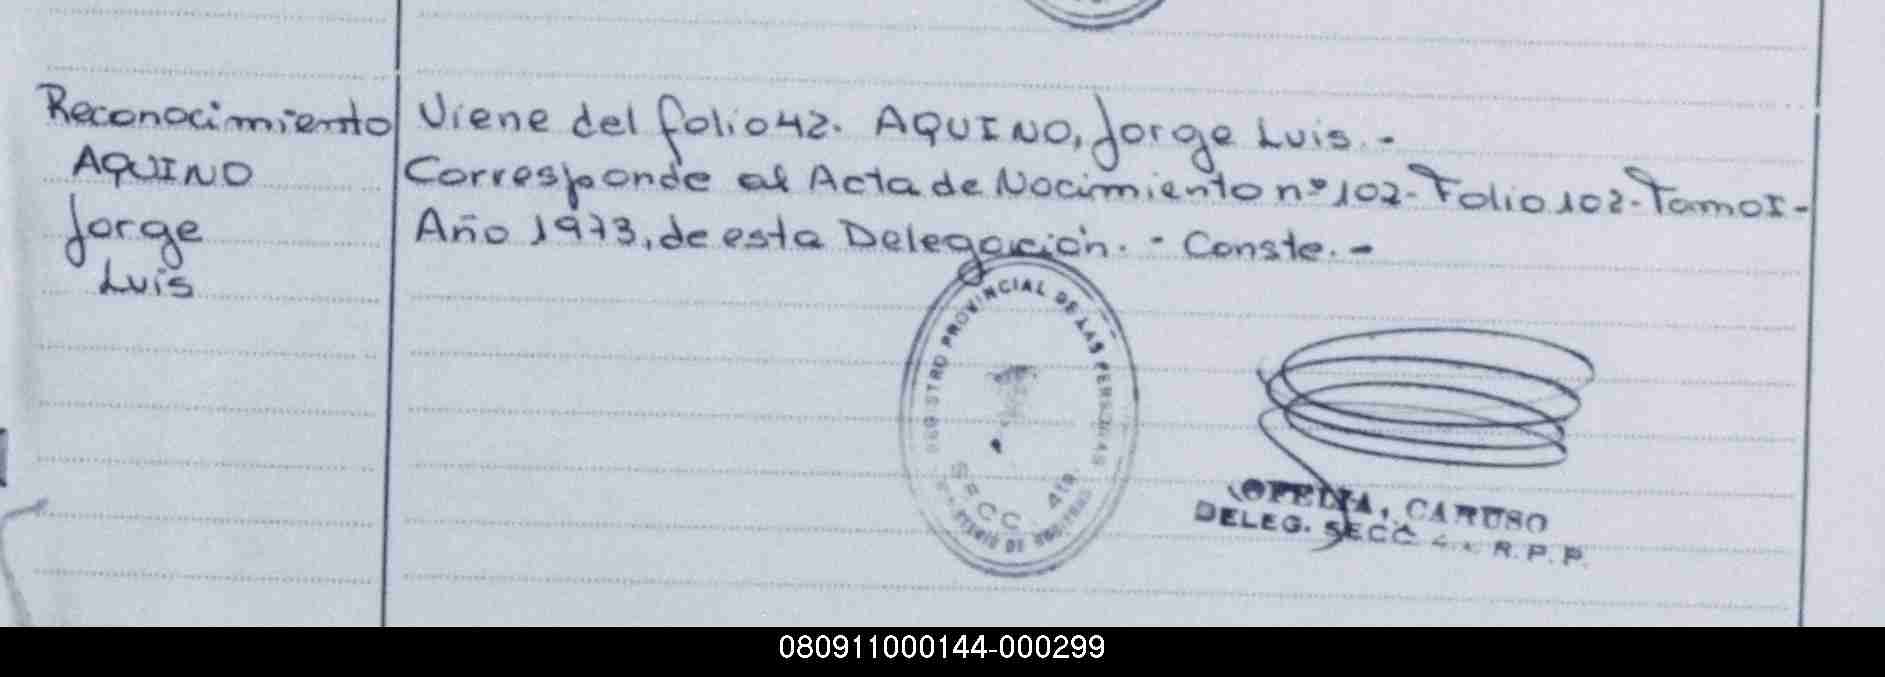 Reconocimiento
AQUINO
Jorge
Luis
Viene del folio 42. AQUINO, Jorge Luis.-
Corresponde al Acta de Nacimiento nº 102- Folio 102- Tomo I-
Año 1973, de esta Delegación.- Conste.-
REGISTRO PROVINCIAL DE LAS PERSONAS
SECC 4ta.
OFELIA, CARUSO
DELEG. SECC R.P.P.
080911000144-000299